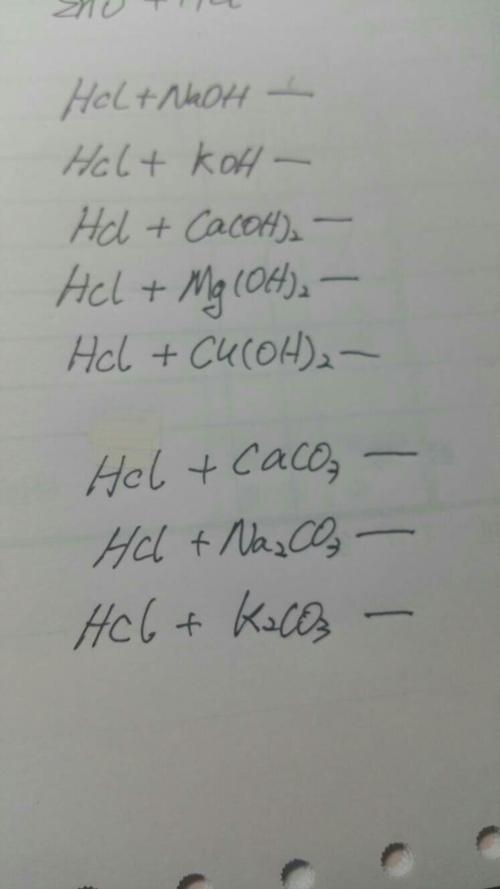 ZnO + HCl
HCl + NaOH —
HCl + KOH —
HCl + Ca(OH)₂ —
HCl + Mg(OH)₂ —
HCl + Cu(OH)₂ —
HCl + CaCO₃ —
HCl + Na₂CO₃ —
HCl + K₂CO₃ —